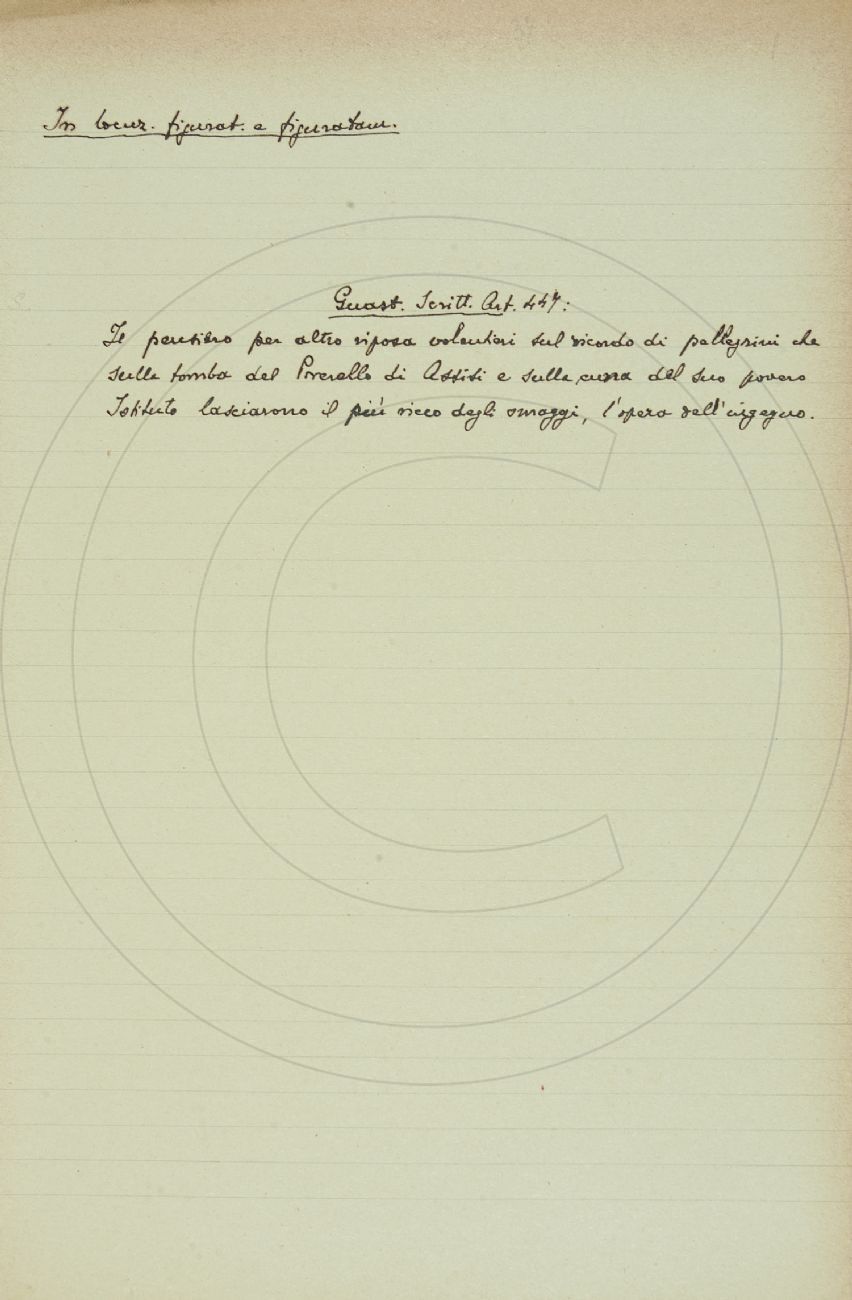 In locuz. figurat. e figuratam.
Guast. Scritt. Art. 447:
Il pensiero per altro riposa volentieri sul ricordo di pellegrini che
sulla tomba del Poverello di Assisi e sulla cuna del suo povero
Istituto lasciarono il più ricco degli omaggi, l'opera dell'ingegno.